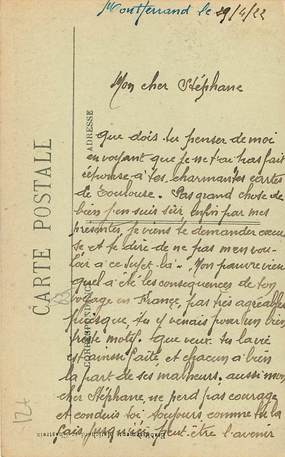 Montferrand le 29/4/22
Mon cher Stéphane
Que dois tu penser de moi
en voyant que je ne t'ai pas fait
réponse à tes charmantes cartes
de Toulouse. Pas grand chose de
bien j'en suis sûr enfin par mes
présentes je viens te demander excu
se et te dire de ne pas m'en vou-
loir à ce sujet-là. Mon pauvre vieux
quel a été les conséquences de ton
voyage en France, pas très agréables
puisque tu y venais pour un bien
triste motif. Que veux tu la vie
est ainsi faite et chacun a bien
la part de ses malheurs. aussi mon
cher Stéphane ne perd pas courage
et conduis toi toujours comme tu l'a
fais jusqu'ici peut-être l'avenir
CARTE POSTALE
ADRESSE
CORRESPONDANCE